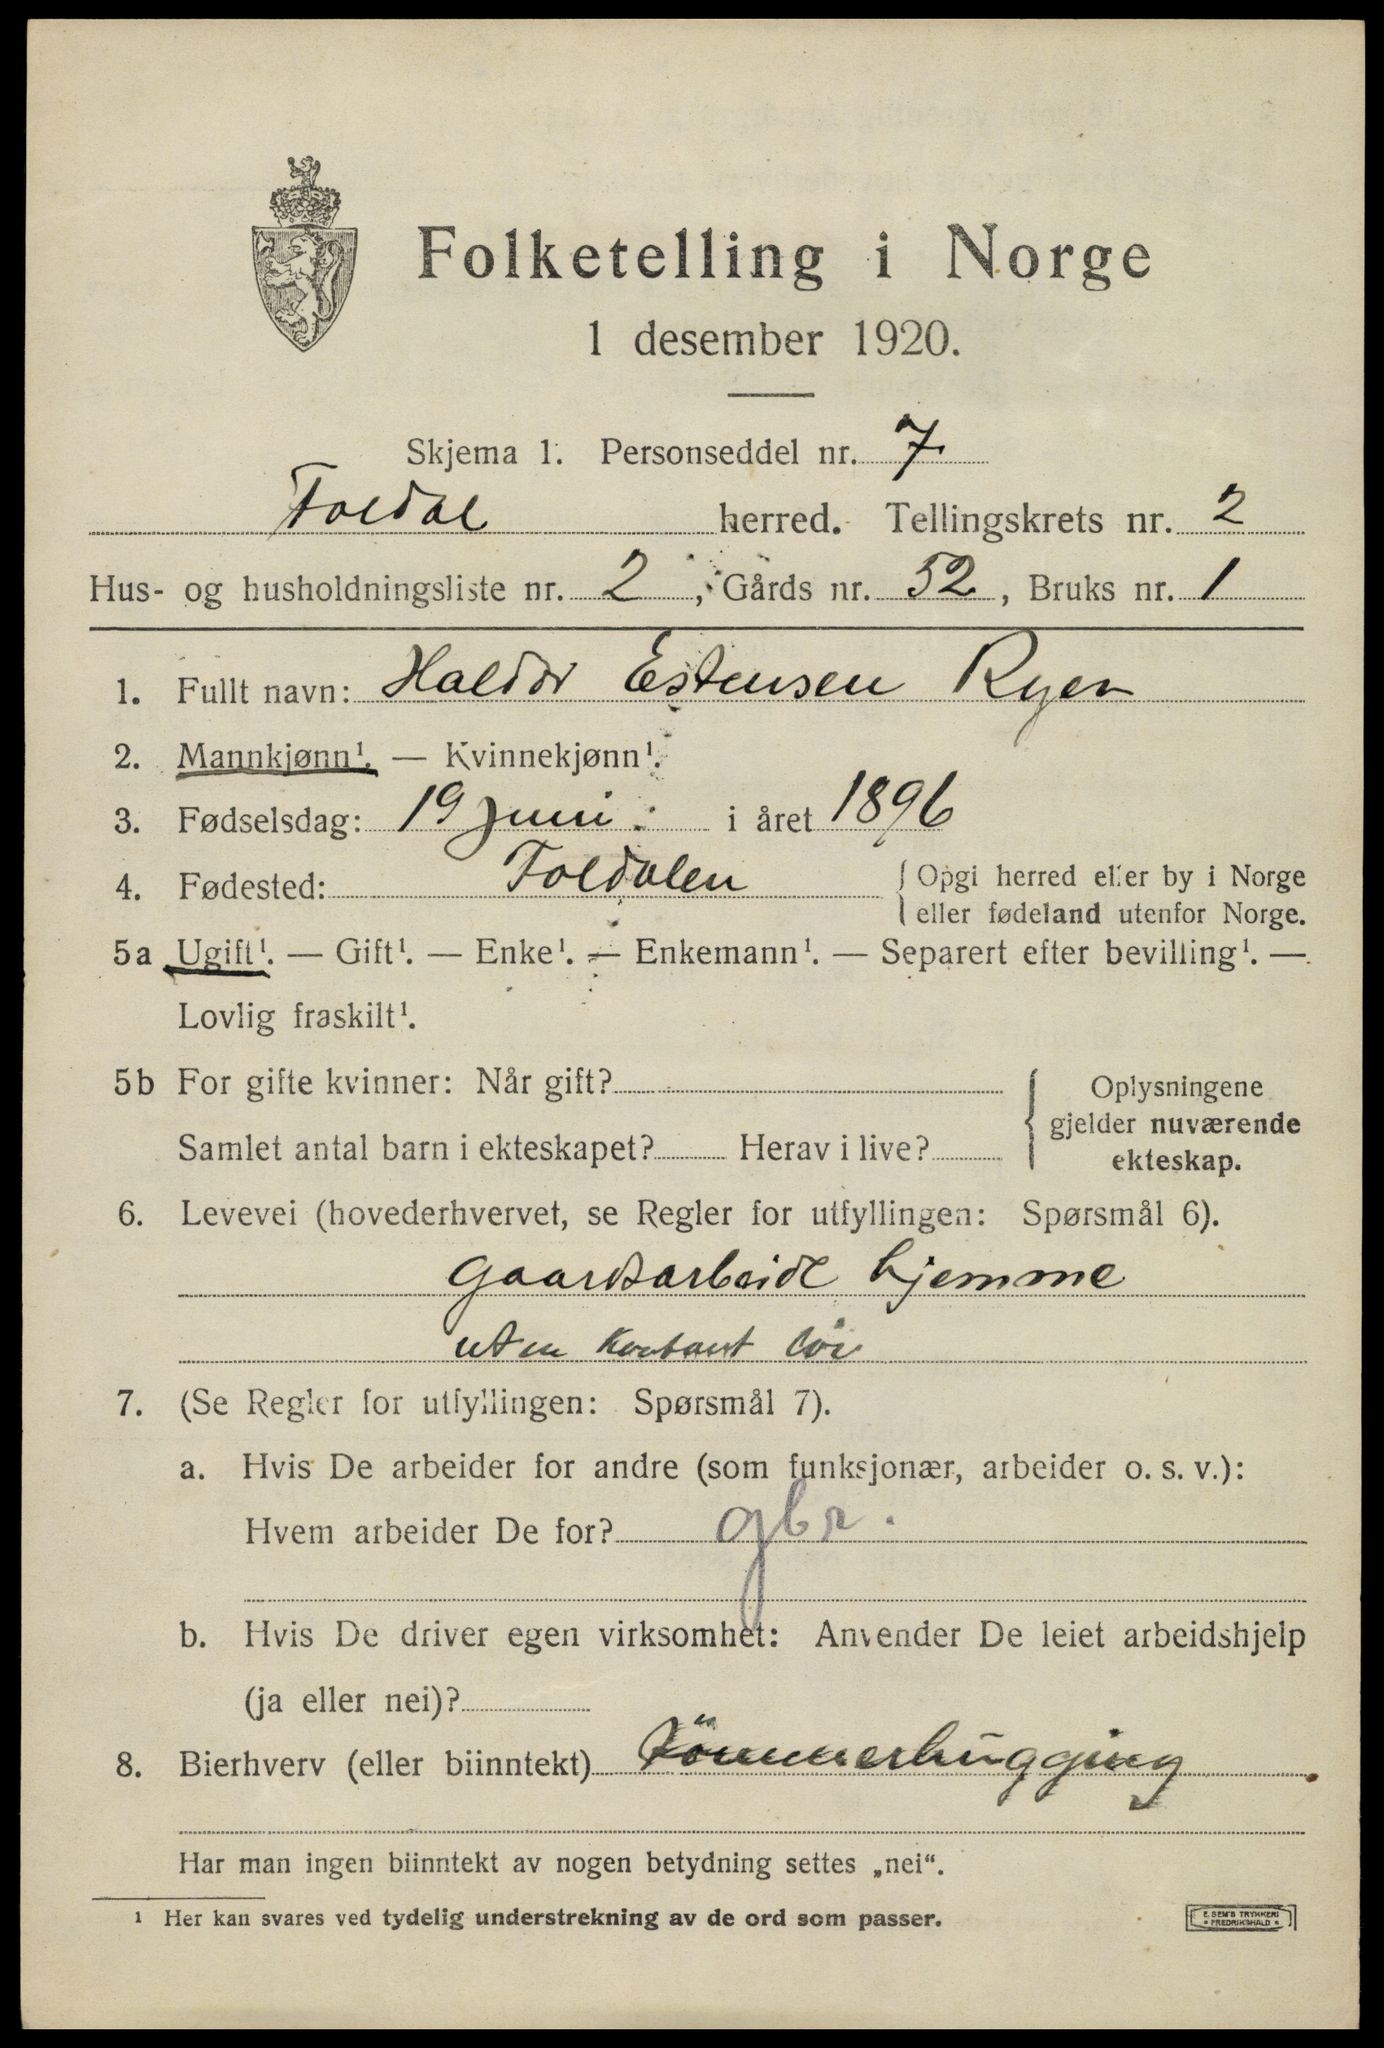 Folketelling i Norge
1 desember 1920.
Skjema 1. Personseddel nr. 7
Foldal herred. Tellingskrets nr. 2
Hus- og husholdningsliste nr. 2, Gårds nr. 52, Bruks nr. 1
1. Fullt navn: Haldor Estensen Ryen
2. Mannkjønn¹. — Kvinnekjønn¹.
3. Fødselsdag: 19 juni i året 1896
4. Fødested: Foldalen { Opgi herred eller by i Norge
eller fødeland utenfor Norge.
5a Ugift¹. — Gift¹. — Enke¹. — Enkemann¹. — Separert efter bevilling¹. —
Lovlig fraskilt¹.
5b For gifte kvinner: Når gift? { Oplysningene
gjelder nuværende
Samlet antal barn i ekteskapet? Herav i live?
ekteskap.
6. Levevei (hovederhvervet, se Regler for utfyllingen: Spørsmål 6).
Gaardsarbeide hjemme
uten kontant løn
7. (Se Regler for utfyllingen: Spørsmål 7).
a. Hvis De arbeider for andre (som funksjonær, arbeider o. s. v.):
Hvem arbeider De for? gbr.
b. Hvis De driver egen virksomhet: Anvender De leiet arbeidshjelp
(ja eller nei)?
8. Bierhverv (eller biinntekt) Tömmerhugging
Har man ingen biinntekt av nogen betydning settes „nei“.
¹ Her kan svares ved tydelig understrekning av de ord som passer.
E. SEM'S TRYKKERI
• FREDRIKSHALD •